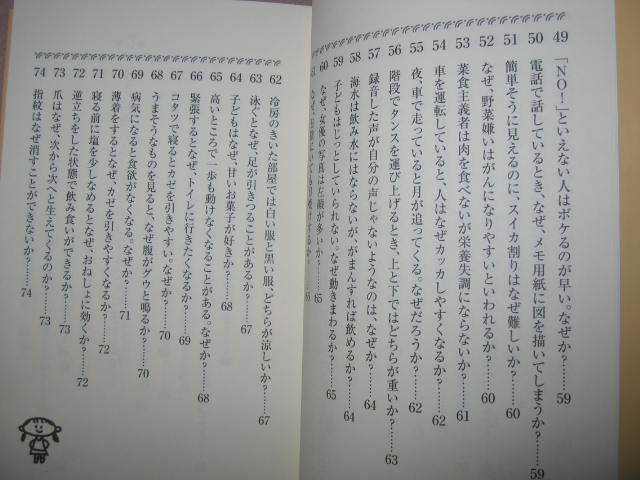 49 「NO！」といえない人はボケるのが早い。なぜか？……59
50 電話で話しているとき、なぜ、メモ用紙に図を描いてしまうか？……59
51 簡単そうに見えるのに、スイカ割りはなぜ難しいか？……60
52 なぜ、野菜嫌いはがんになりやすいといわれるか？……60
53 菜食主義者は肉を食べないが栄養失調にならないか？……61
54 車を運転していると、人はなぜカッカしやすくなるか？……62
55 夜、車で走っていると月が追ってくる。なぜだろうか？……62
56 階段でタンスを運び上げるとき、上と下ではどちらが重いか？……63
57 録音した声が自分の声じゃないようなのは、なぜか？……64
58 海水は飲み水にはならないが、がまんすれば飲めるか？……64
59 子どもはじっとしていられない。なぜ動きまわるか？……65
60 なぜ、女優の写真は左顔が多いか？……65
62 冷房のきいた部屋では白い服と黒い服、どちらが涼しいか？……67
63 泳ぐとなぜ、足が引きつることがあるか？……67
64 子どもはなぜ、甘いお菓子が好きか？……68
65 高いところで一歩も動けなくなることがある。なぜか？……68
66 緊張するとなぜ、トイレに行きたくなるか？……69
67 コタツで寝るとカゼを引きやすい。なぜか？……70
68 うまそうなものを見ると、なぜ腹がグウと鳴るか？……70
69 病気になると食欲がなくなる。なぜか？……71
70 薄着をするとなぜ、カゼを引きやすくなるか？……71
71 寝る前に塩を少しなめるとなぜ、おねしょに効くか？……72
72 逆立ちをした状態で飲み食いができるか？……72
73 爪はなぜ、次から次へと生えてくるのか？……73
74 指紋はなぜ消すことができないか？……74